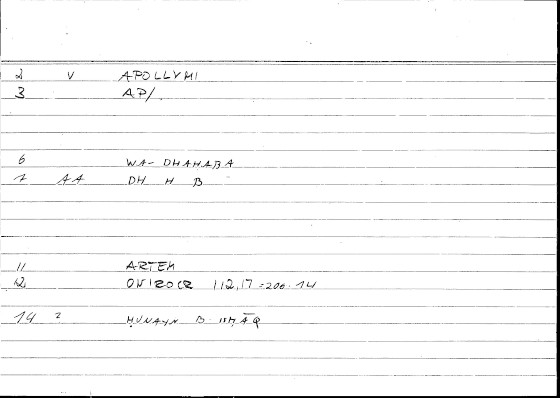 2 V APOLLYMI
3 AP/
6 WA- DHAHABA
7 AA DH H B
11 ARTEM
12 ONIROCR 112,17 = 206.14
14 2 ḤUNAYN B. ISḤĀQ